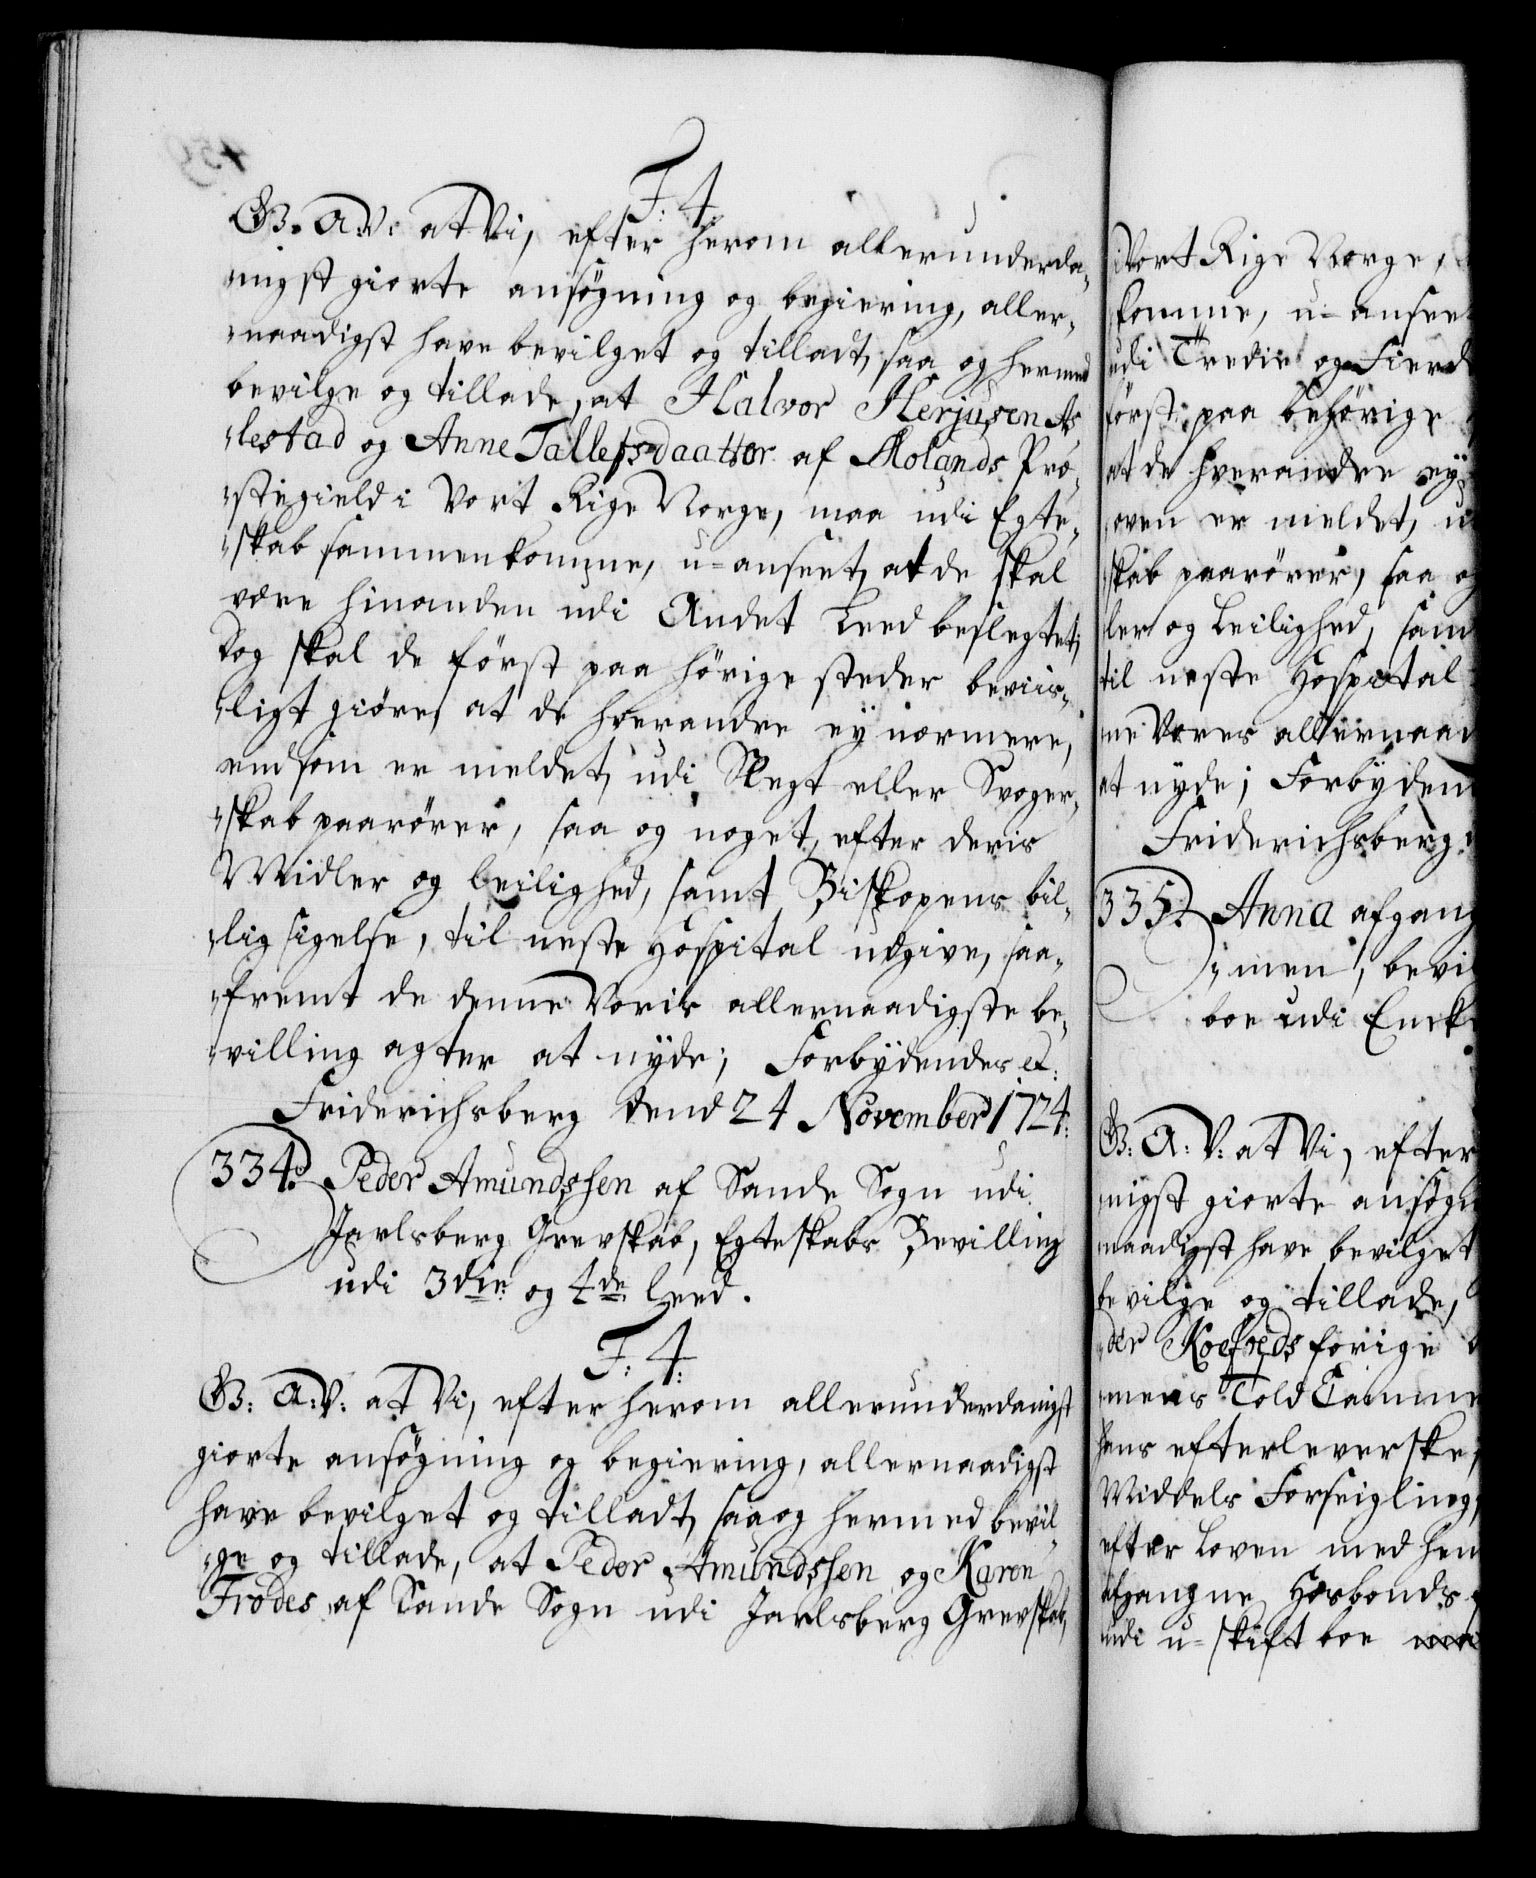 F: 4.
G. A. V: at Vi, efter herom allerunderda-
-nigst giorte ansøgning og begiering, aller-
-naadigst have bevilget og tilladt, saa og hermed
bevilge og tillade, at Halvor Herjusen As
-lestad og Anne Tallefsdaatter af Molands Præ-
-stegield i Vort Rige Norge, maa udi Egte-
-skab sammenkomme, u-anseet, at de skal
være hinanden udi Andet Leed beslegtet;
Dog skal de først paa hørige steder beviis-
-ligt giøre, at de hverandre ey nærmere,
end som er meldet, udi Slegt eller Svoger-
-skab paarører, saa og noget, efter deris
Midler og leilighed, samt Biskopens bil-
-lig sigelse, til neste Hospital udgive, saa-
-fremt de denne Voris allernaadigste be-
-villing agter at nyde; Forbydendes et:
Friderichsberg dend 24 November 1724.
334. Peder Amundssen af Sande Sogn udi
Jarlsberg Grevskab, Egteskabs Bevilling
udi 3die og 4de Leed.
F: 4.
G: A: V: at Vi, efter herom allerunderdanigst
giorte ansøgning og begiering, allernaadigst
have bevilget og tilladt, saa og hermed bevil-
-ge og tillade, at Peder Amundssen og Karen
Frodes af Sande Sogn udi Jarlsberg Grevskab,
i Vort Rige Norge,
komme, u-anseet
udi Tredie og Fierd
først paa behørige
at de hverandre ey
oven er meldet, u
skab paarører, saa og
ler og Leilighed, sam
til neste Hospital
ne Vores allernaad
at nyde; Forbyden
Friderichsberg
335. Anna afgang
-men, bevil
boe udi Enke
G: A: V: at Vi, efter
nigst giorte ansøgn
naadigst have bevilget
bevilge og tillade,
-der Koefoeds forige
-mens Told Camme
hans efterleverske,
Middels Forseigling,
efter Loven med hen
afgangne Hosbonds
udi u-skift boe